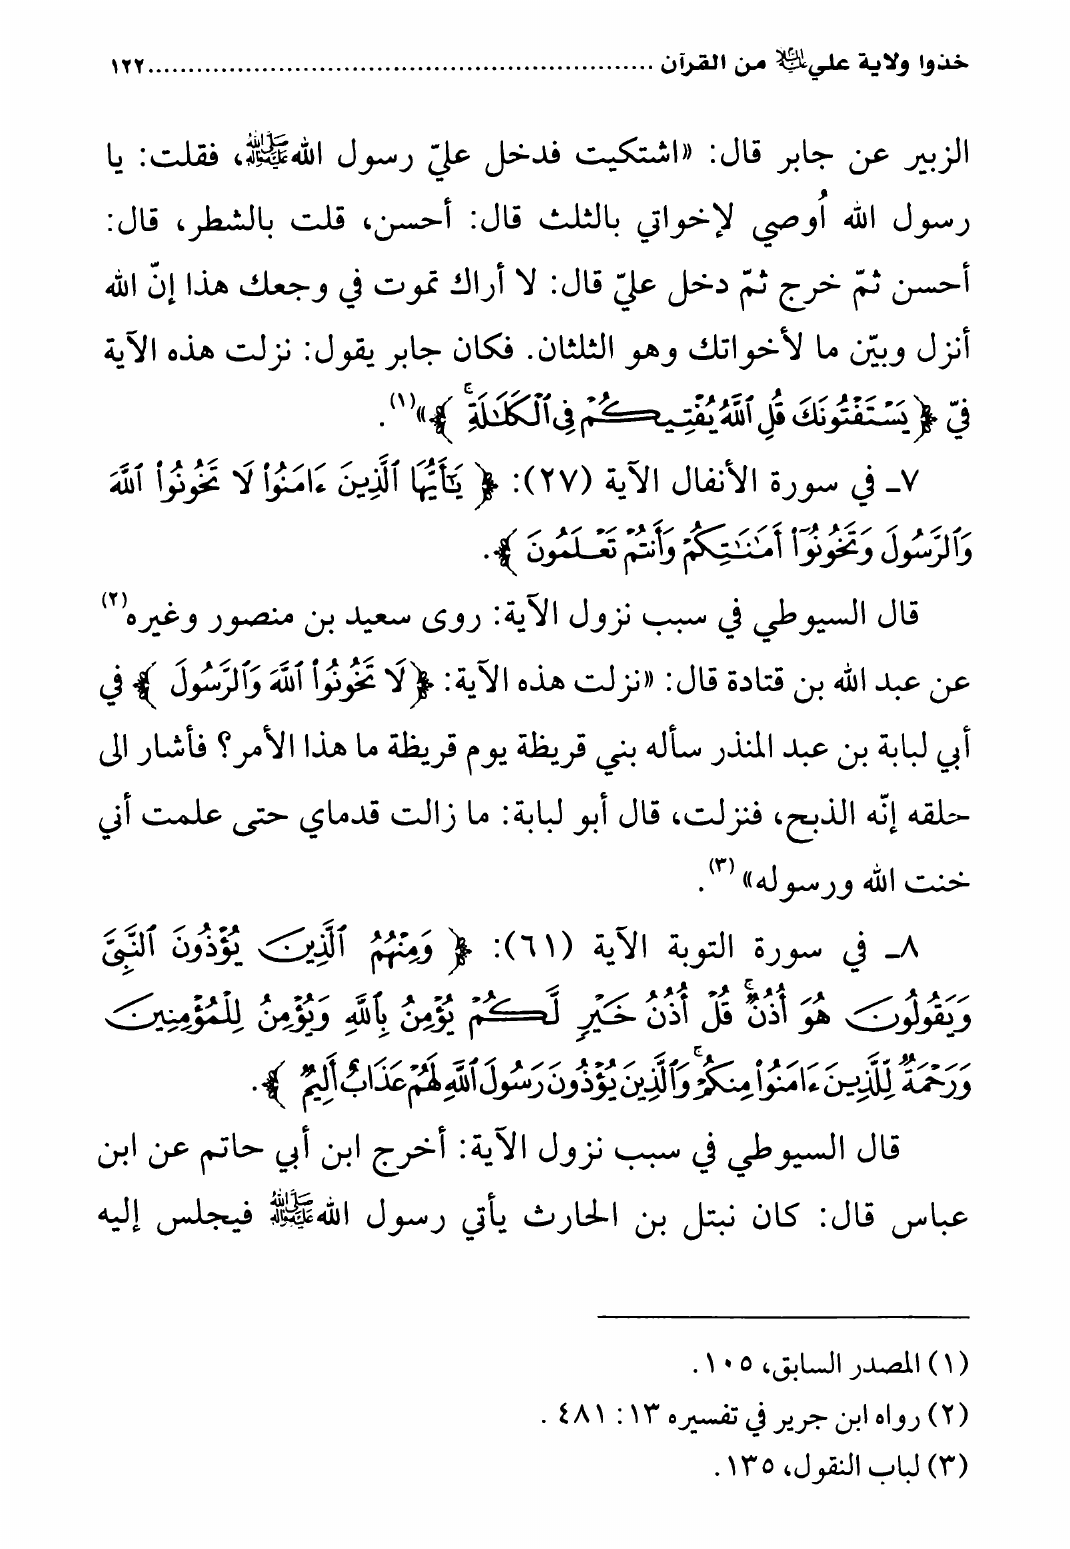 خذوا ولاية علي عليه السلام من القرآن ........................................................... ١٢٢
الزبير عن جابر قال: «اشتكيت فدخل عليّ رسول الله ﷺ، فقلت: يا
رسول الله أُوصي لإخواتي بالثلث قال: أحسن، قلت بالشطر، قال:
أحسن ثمّ خرج ثمّ دخل عليّ قال: لا أراك تموت في وجعك هذا إنّ الله
أنزل وبيّن ما لأخواتك وهو الثلثان. فكان جابر يقول: نزلت هذه الآية
فيّ ﴿ يَسْتَفْتُونَكَ قُلِ ٱللَّهُ يُفْتِيكُمْ فِى ٱلْكَلَـٰلَةِ ۚ ﴾»(١).
٧ـ في سورة الأنفال الآية (٢٧): ﴿ يَـٰٓأَيُّهَا ٱلَّذِينَ ءَامَنُوا۟ لَا تَخُونُوا۟ ٱللَّهَ
وَٱلرَّسُولَ وَتَخُونُوٓا۟ أَمَـٰنَـٰتِكُمْ وَأَنتُمْ تَعْلَمُونَ ﴾.
قال السيوطي في سبب نزول الآية: روى سعيد بن منصور وغيره(٢)
عن عبد الله بن قتادة قال: «نزلت هذه الآية: ﴿لَا تَخُونُوا۟ ٱللَّهَ وَٱلرَّسُولَ ﴾ في
أبي لبابة بن عبد المنذر سأله بني قريظة يوم قريظة ما هذا الأمر؟ فأشار الى
حلقه إنّه الذبح، فنزلت، قال أبو لبابة: ما زالت قدماي حتى علمت أني
خنت الله ورسوله»(٣).
٨ـ في سورة التوبة الآية (٦١): ﴿ وَمِنْهُمُ ٱلَّذِينَ يُؤْذُونَ ٱلنَّبِىَّ
وَيَقُولُونَ هُوَ أُذُنٌ ۚ قُلْ أُذُنُ خَيْرٍ لَّكُمْ يُؤْمِنُ بِٱللَّهِ وَيُؤْمِنُ لِلْمُؤْمِنِينَ
وَرَحْمَةٌ لِّلَّذِينَ ءَامَنُوا۟ مِنكُمْ ۚ وَٱلَّذِينَ يُؤْذُونَ رَسُولَ ٱللَّهِ لَهُمْ عَذَابٌ أَلِيمٌ ﴾.
قال السيوطي في سبب نزول الآية: أخرج ابن أبي حاتم عن ابن
عباس قال: كان نبتل بن الحارث يأتي رسول الله ﷺ فيجلس إليه
(١) المصدر السابق، ١٠٥.
(٢) رواه ابن جرير في تفسيره ١٣: ٤٨١ .
(٣) لباب النقول، ١٣٥.